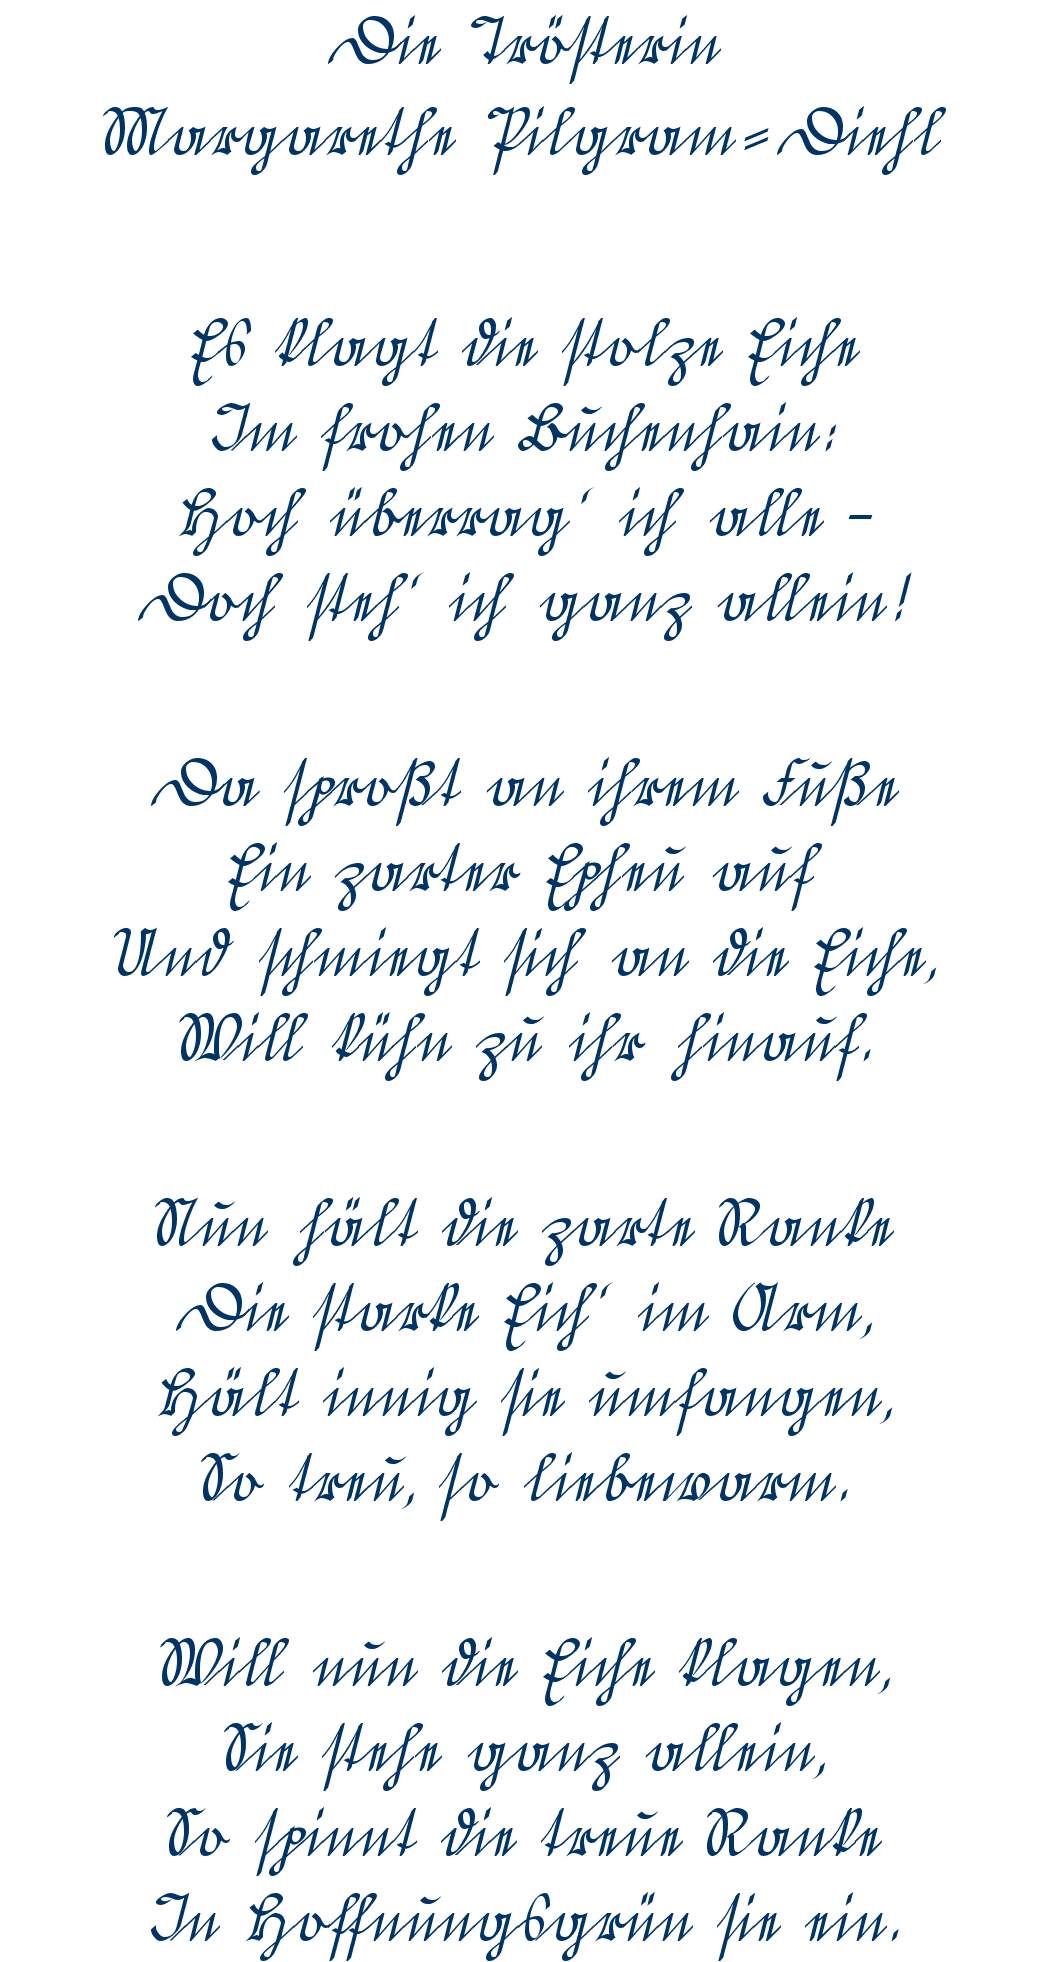 Die Trösterin
Margarethe Pilgram=Diehl
Es klagt die stolze Eiche
Im frohen Buchenhain:
Hoch überrag’ ich alle –
Doch steh’ ich ganz allein!
Da sproßt an ihrem Fuße
Ein zarter Epheu auf
Und schmiegt sich an die Eiche,
Will kühn zu ihr hinauf.
Nun hält die zarte Ranke
Die starke Eich’ im Arm,
Hält innig sie umfangen,
So treu, so liebewarm.
Will nun die Eiche klagen,
Sie stehe ganz allein,
So spinnt die treue Ranke
In Hoffnungsgrün sie ein.